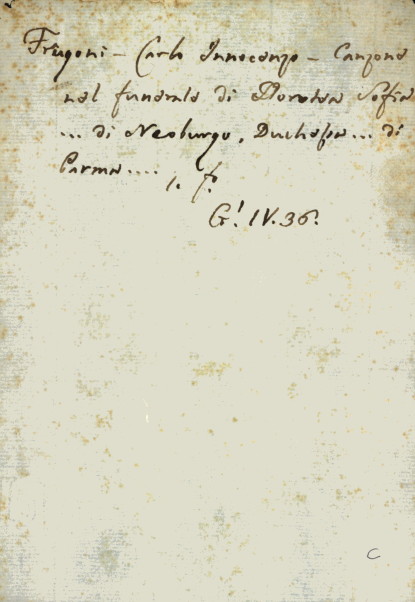 Frugoni - Carlo Innocenzo - Canzone
nel funerale di Dorotea Sofia
... di Neoburgo, Duchessa... di
Parma....
1. f.
G! IV. 36.
C